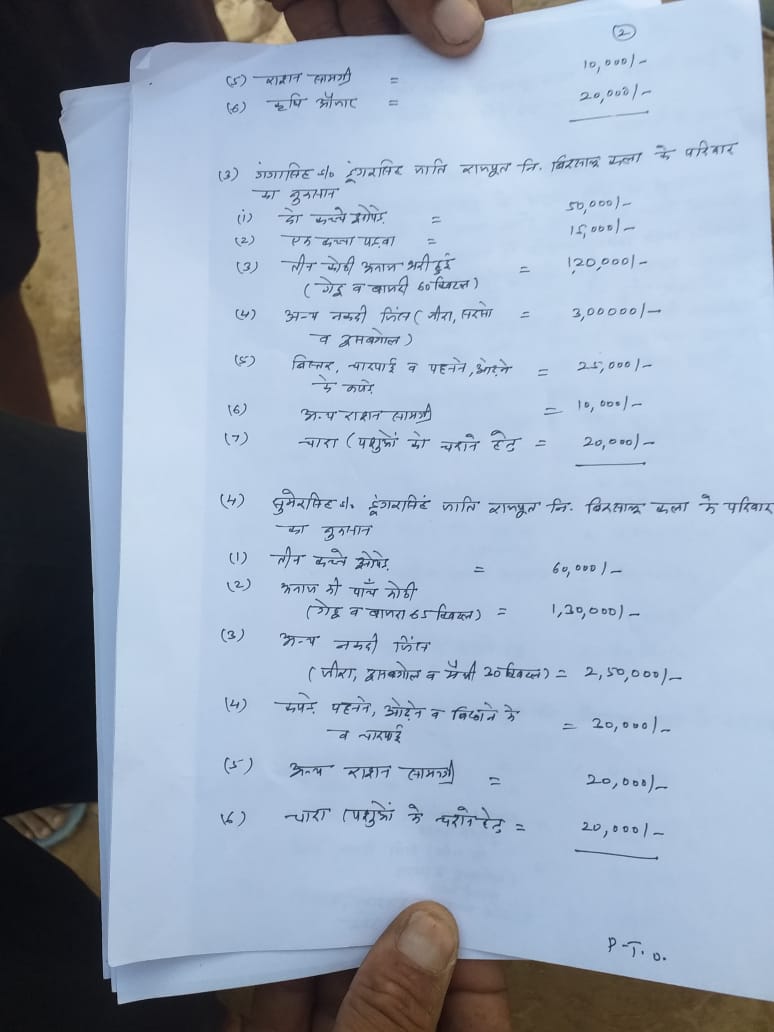 (2)
(5) राशन सामग्री = 10,000/-
(6) कृषि औजार = 20,000/-
(3) गंगासिंह s/o डूंगरसिंह जाति राजपूत नि. बिरसाला कला के परिवार
का नुकसान
(i) दो कच्चे झोपे. = 50,000/-
(2) एक कच्चा पडवा = 15,000/-
(3) तीन कोठी अनाज भरी हुई = 1,20,000/-
(गेहू व बाजरी 60 क्विटल)
(4) अन्य नकदी जिंस (जीरा, सरसो = 3,00000/-
व इसबगोल)
(5) बिस्तर, चारपाई व पहनने, ओढ़ने = 25,000/-
के कपड़े
(6) अन्य राशन सामग्री = 10,000/-
(7) चारा (पशुओं को चराने हेतु = 20,000/-
(4) सुमेरसिंह s/o डूंगरसिंह जाति राजपूत नि. बिरसाला कला के परिवार
का नुकसान
(1) तीन कच्चे झोपे. = 60,000/-
(2) अनाज की पाँच कोठी
(गेहू व बाजरा 65 क्विटल) = 1,30,000/-
(3) अन्य नकदी जिंस
(जीरा, इसबगोल व मैथी 20 क्विटल) = 2,50,000/-
(4) कपड़े पहनने, ओढ़ने व बिछाने के = 20,000/-
व चारपाई
(5) अन्य राशन सामग्री = 20,000/-
(6) चारा (पशुओं के चराने हेतु = 20,000/-
P.T.O.